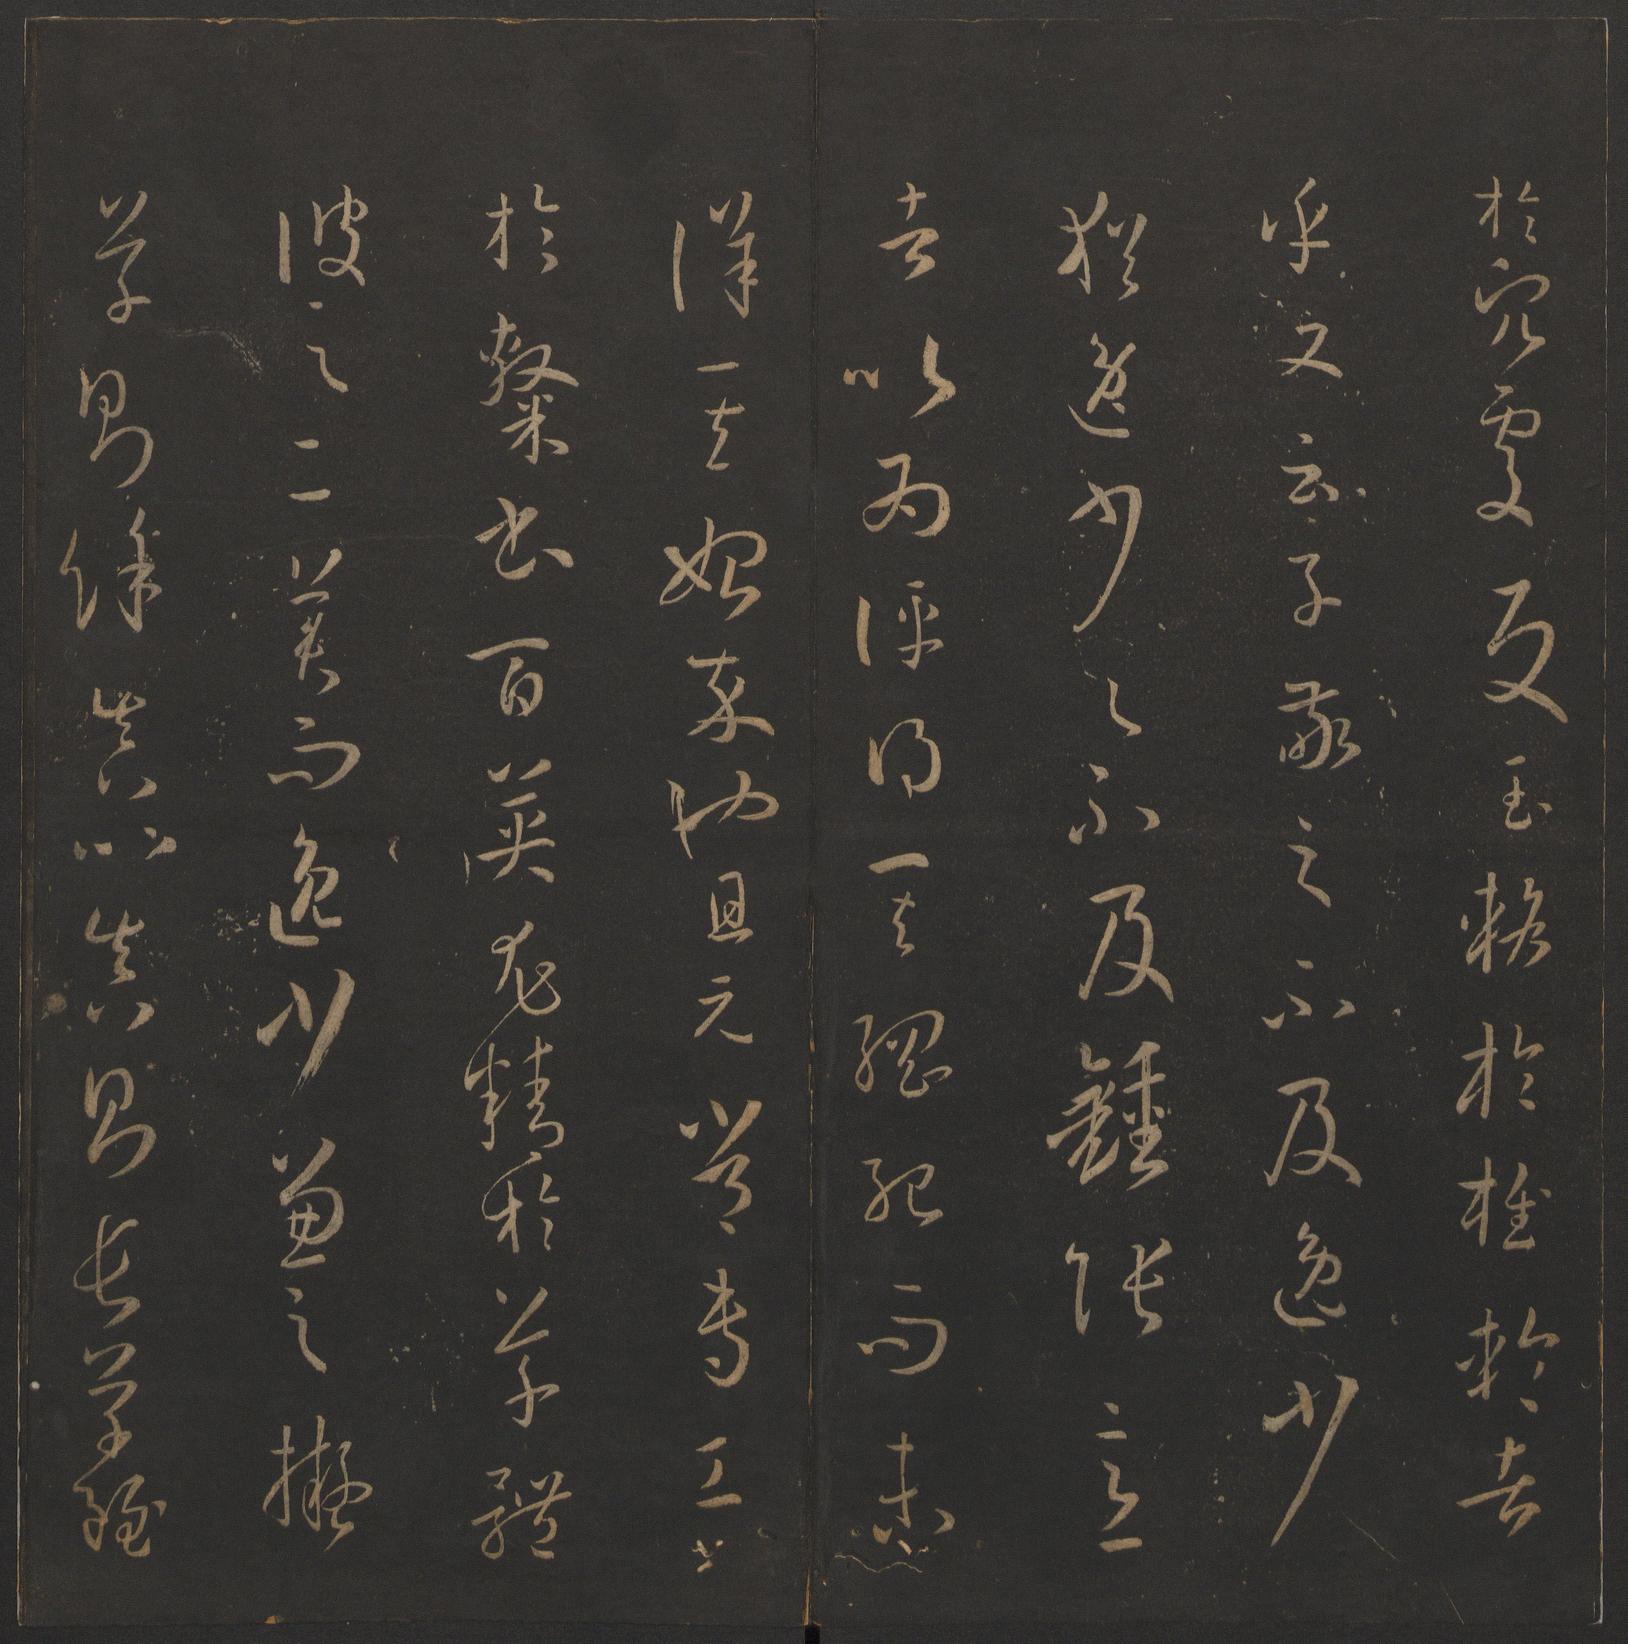 於穴處反玉輅於椎輪者
乎又云子敬之不及逸少
猶逸少之不及鍾張意
者以為評得其綱紀而未
詳其始卒也且元常專工
於隸書百英尤精於草體
彼之二美而逸少兼之擬
草則餘真比真則長草雖